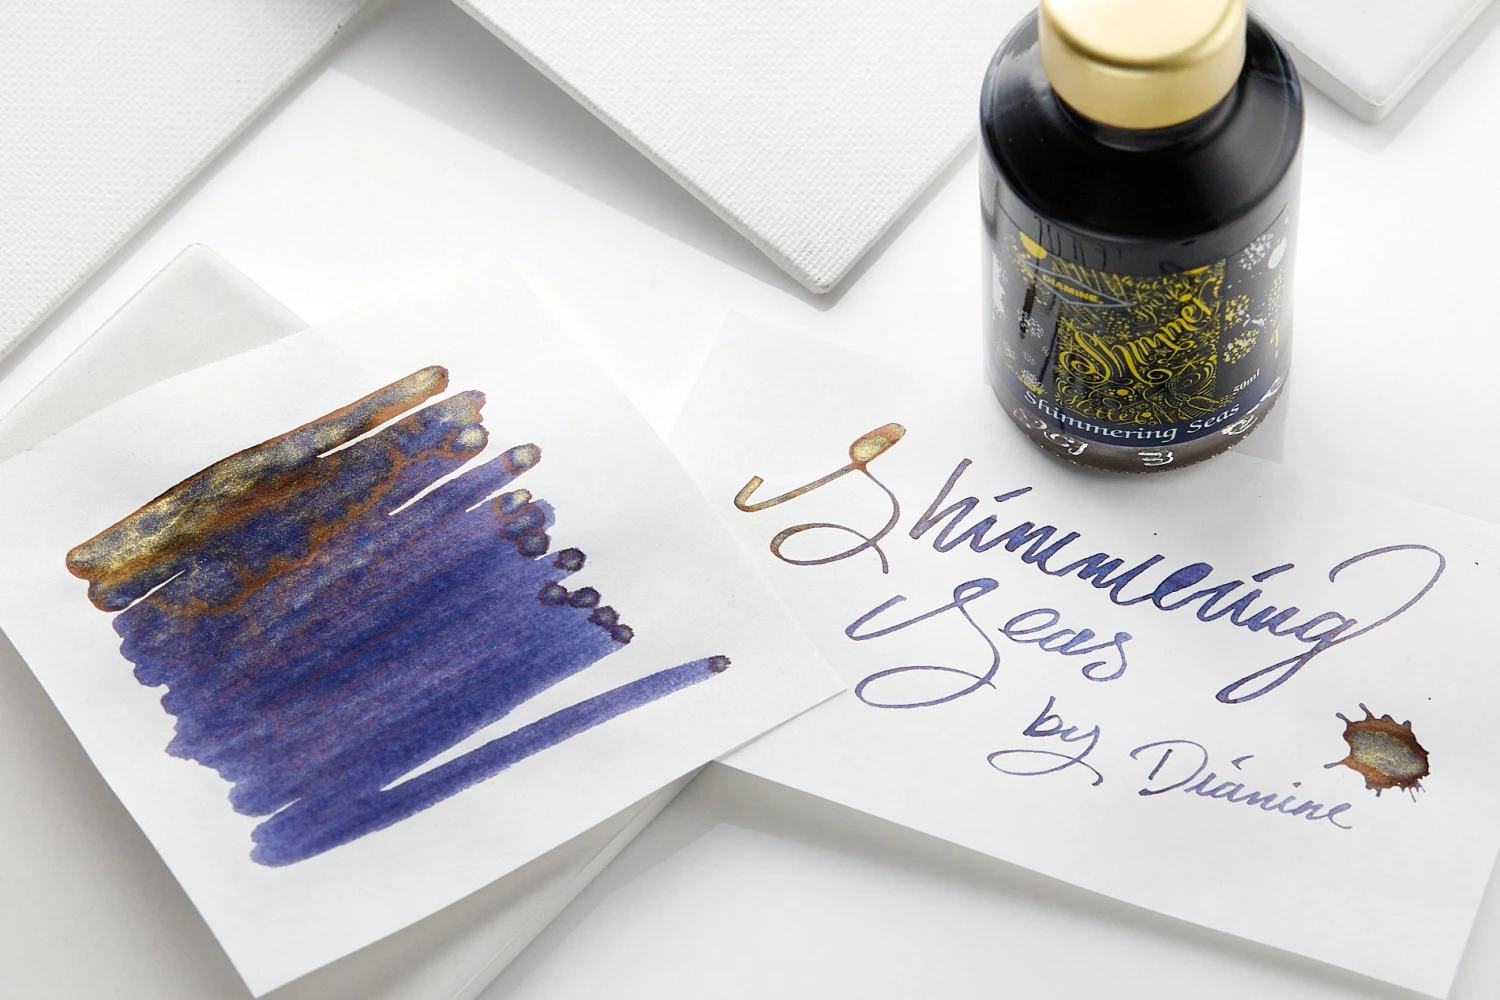 DIAMINE
Shimmer
50ml
Shimmering Seas
Shimmering
Seas
by Diamine